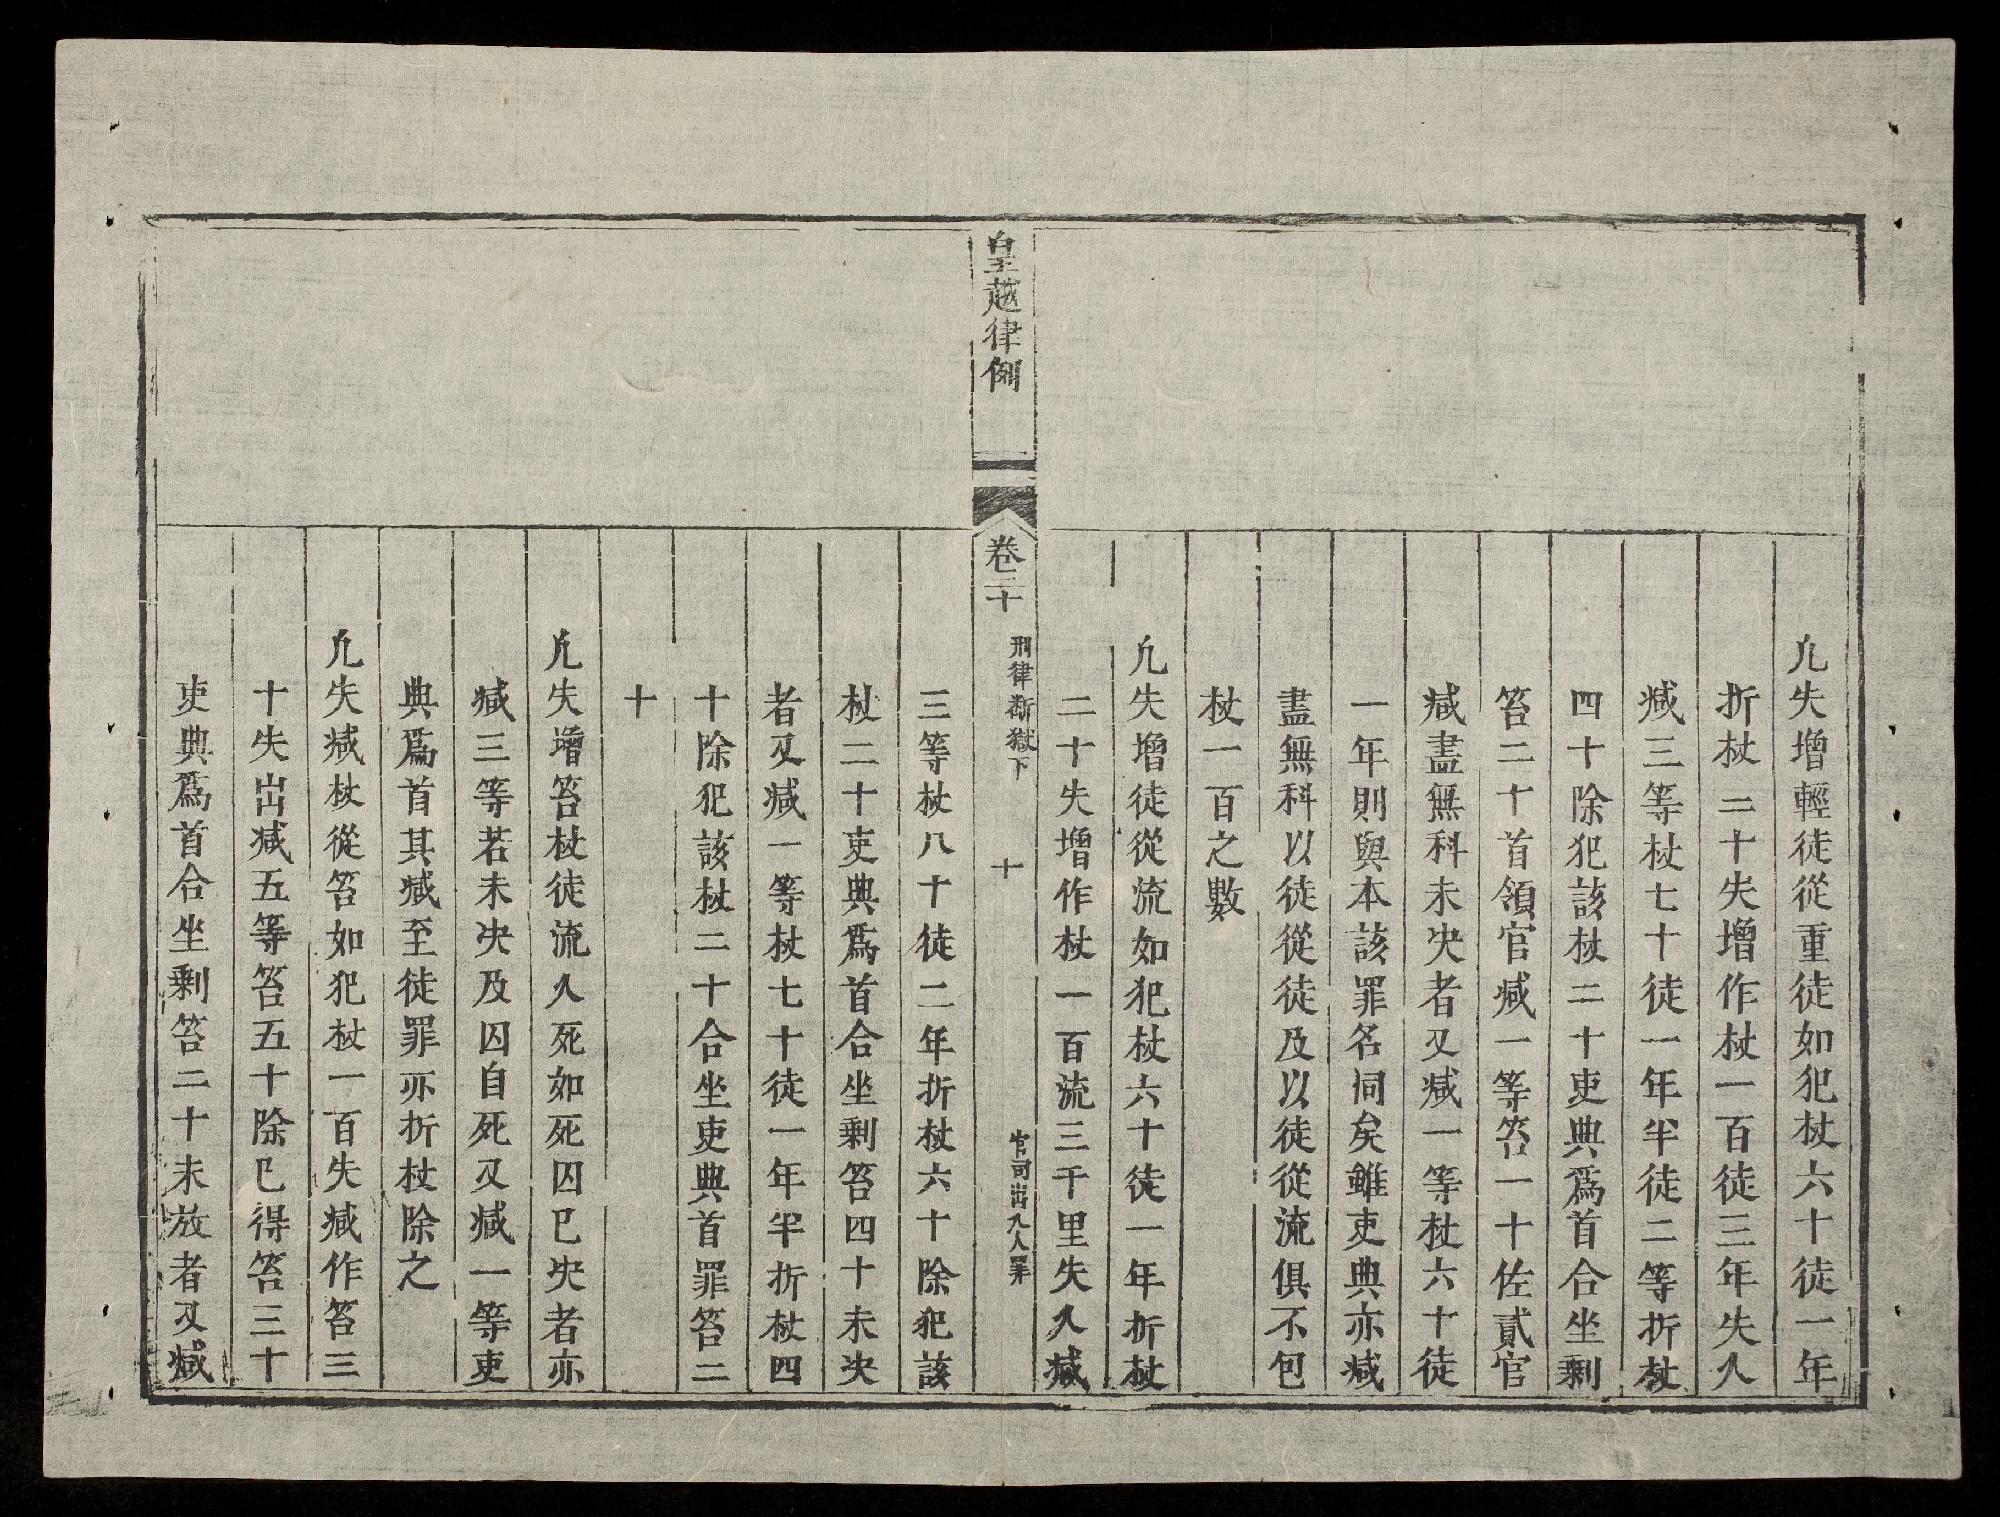 凢失增輕徒從重徒如犯杖六十徒一年
折杖二十失增作杖一百徒三年失入
减三等杖七十徒一年半徒二等折杖
四十除犯該杖二十吏典爲首合坐剩
笞二十首領官减一等笞一十佐貳官
减盡無科未决者又减一等杖六十徒
一年則與本該罪名同矣雖吏典亦减
盡無科以徒從徒及以徒從流俱不包
杖一百之數
凢失增徒從流如犯杖六十徒一年折杖
二十失增作杖一百流三千里失入减
皇越律例
卷二十
刑律斷獄下
十
官司出入人罪
三等杖八十徒二年折杖六十除犯該
杖二十吏典爲首合坐剩笞四十未决
者又减一等杖七十徒一年半折杖四
十除犯該杖二十合坐吏典首罪笞二
十
凢失增笞杖徒流入死如死囚已决者亦
减三等若未决及囚自死又减一等吏
典爲首其减至徒罪亦折杖除之
凢失减杖從笞如犯杖一百失减作笞三
十失出减五等笞五十除已得笞三十
吏典爲首合坐剩笞二十未放者又减